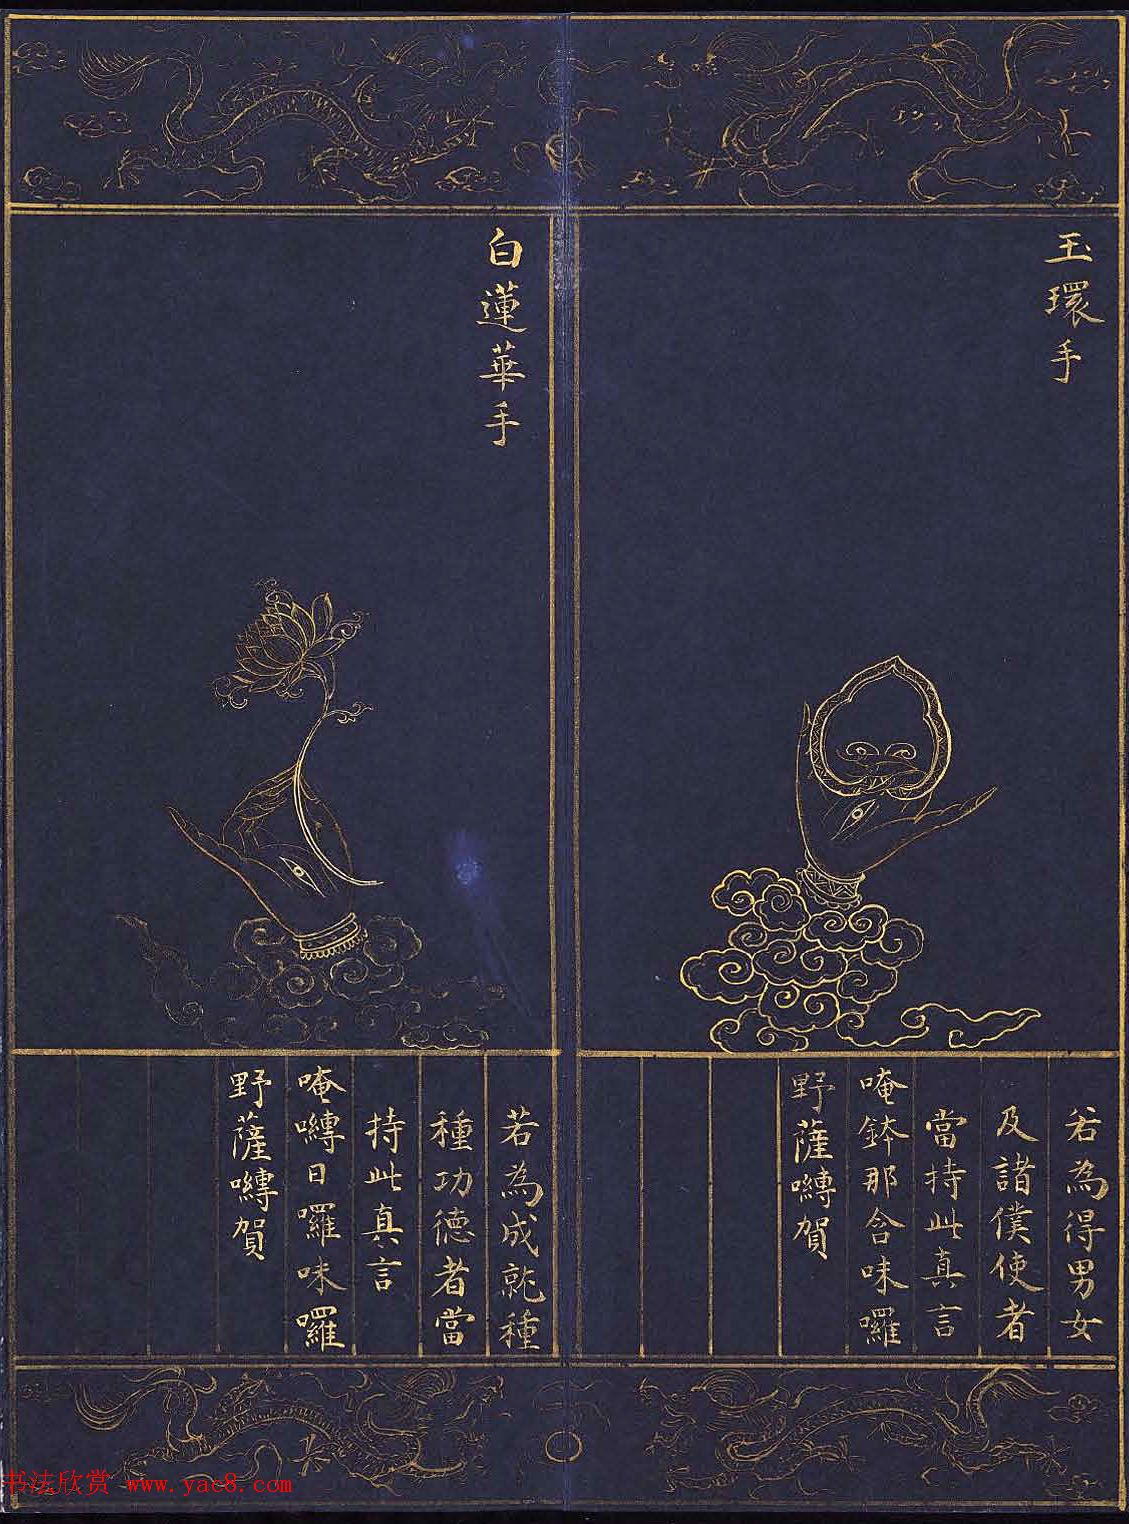 玉環手
若為得男女
及諸僕使者
當持此真言
唵鉢那𤚥味囉
野薩嚩賀
白蓮華手
若為成就種
種功德者當
持此真言
唵嚩日囉味囉
野薩嚩賀
书法欣赏 www.yac8.com